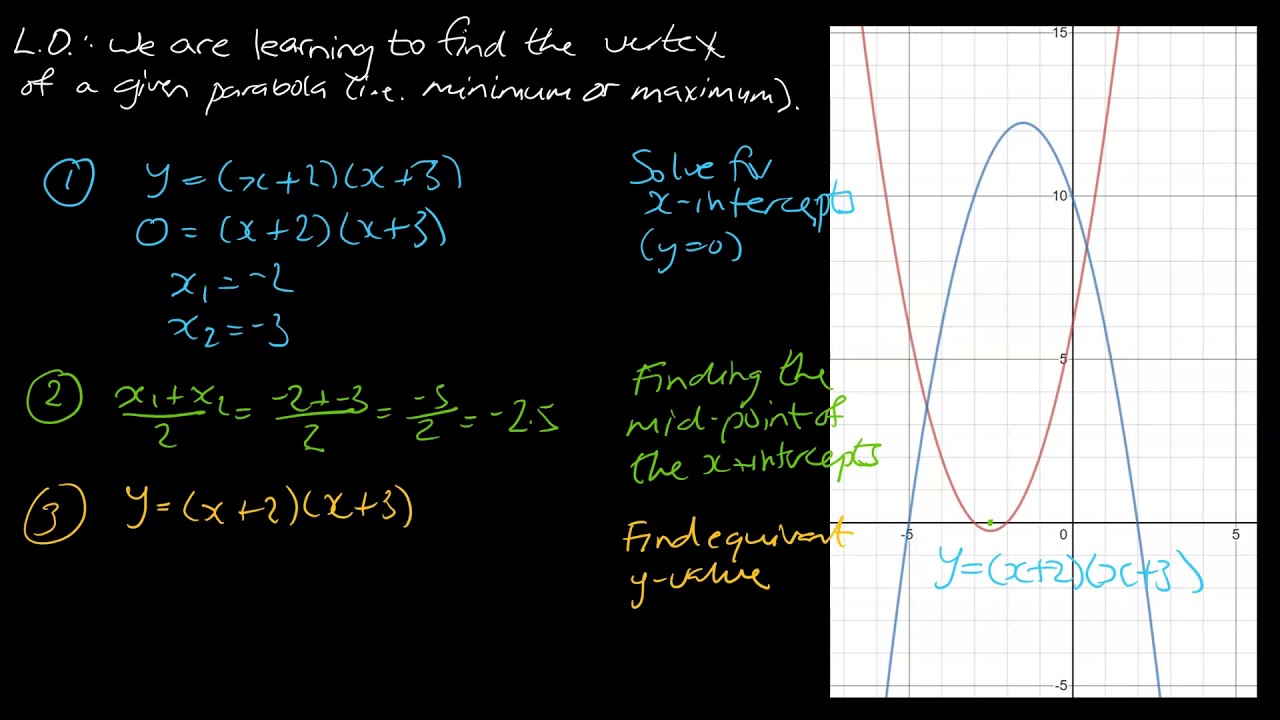 L.O.: we are learning to find the vertex
of a given parabola (i.e. minimum or maximum).
① y=(x+2)(x+3)
0=(x+2)(x+3)
x₁=-2
x₂=-3
Solve for
x-intercepts
(y=0)
② x₁+x₂/2 = -2+-3/2 = -5/2 = -2.5
Finding the
mid-point of
the x-intercepts
③ y=(x+2)(x+3)
Find equivalent
y-value
15
10
5
-5 0 5
-5
y=(x+2)(x+3)